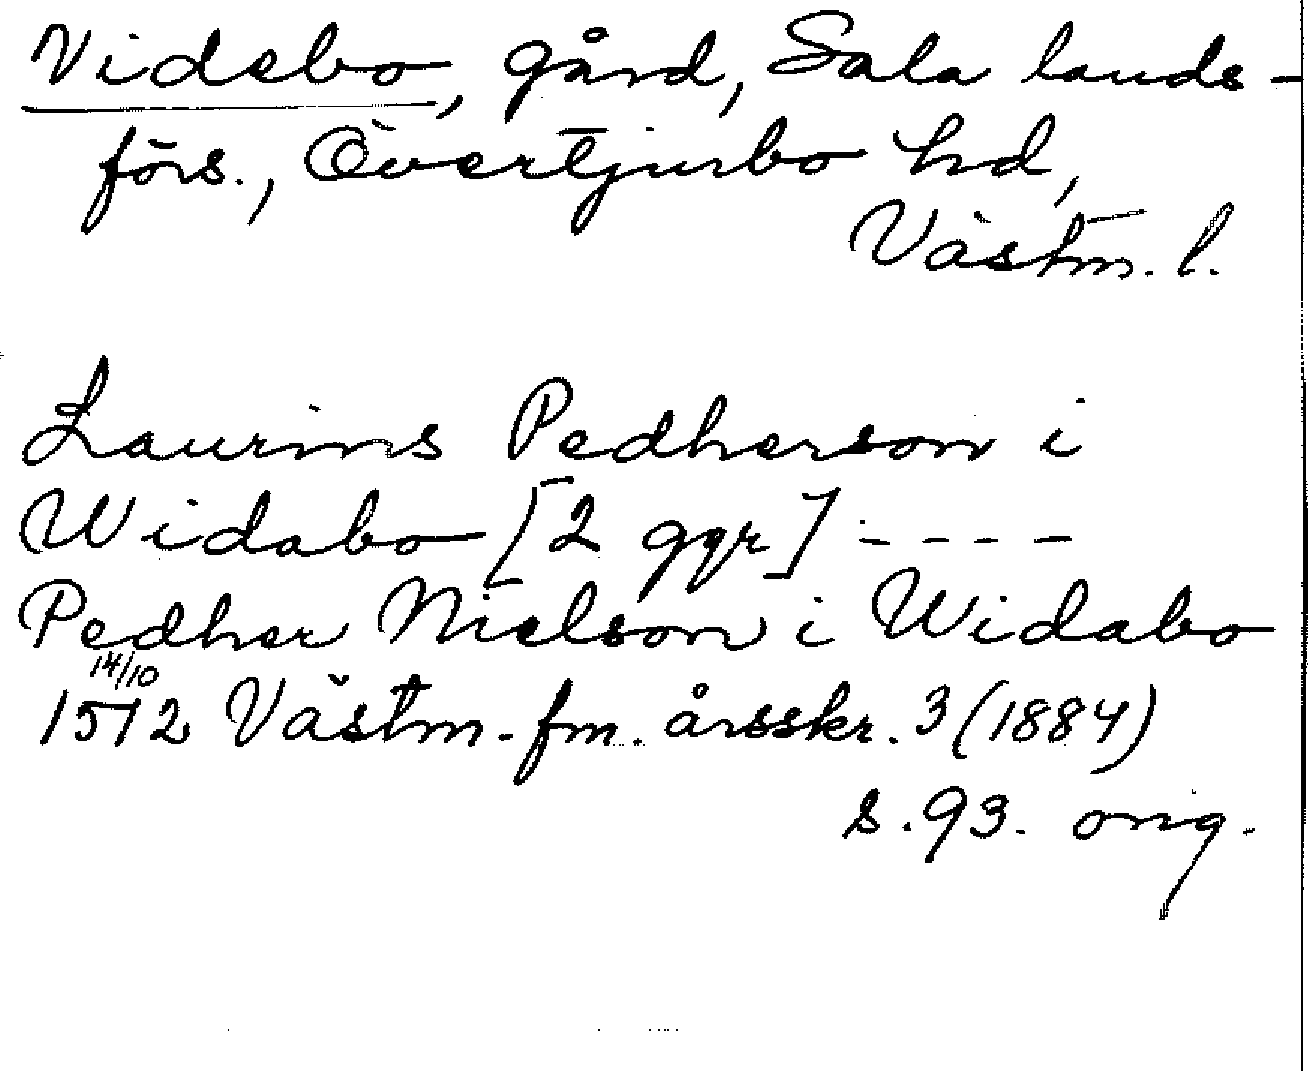 Videbo, gård, Sala lands-
förs., Övertjurbo hd,
Västm. l.
Laurins Pedherson i
Widabo [2 ggr] ----
Pedher Nielson i Widabo
14/10
1572 Västm. fm. årsskr. 3 (1884)
s. 93. orig.